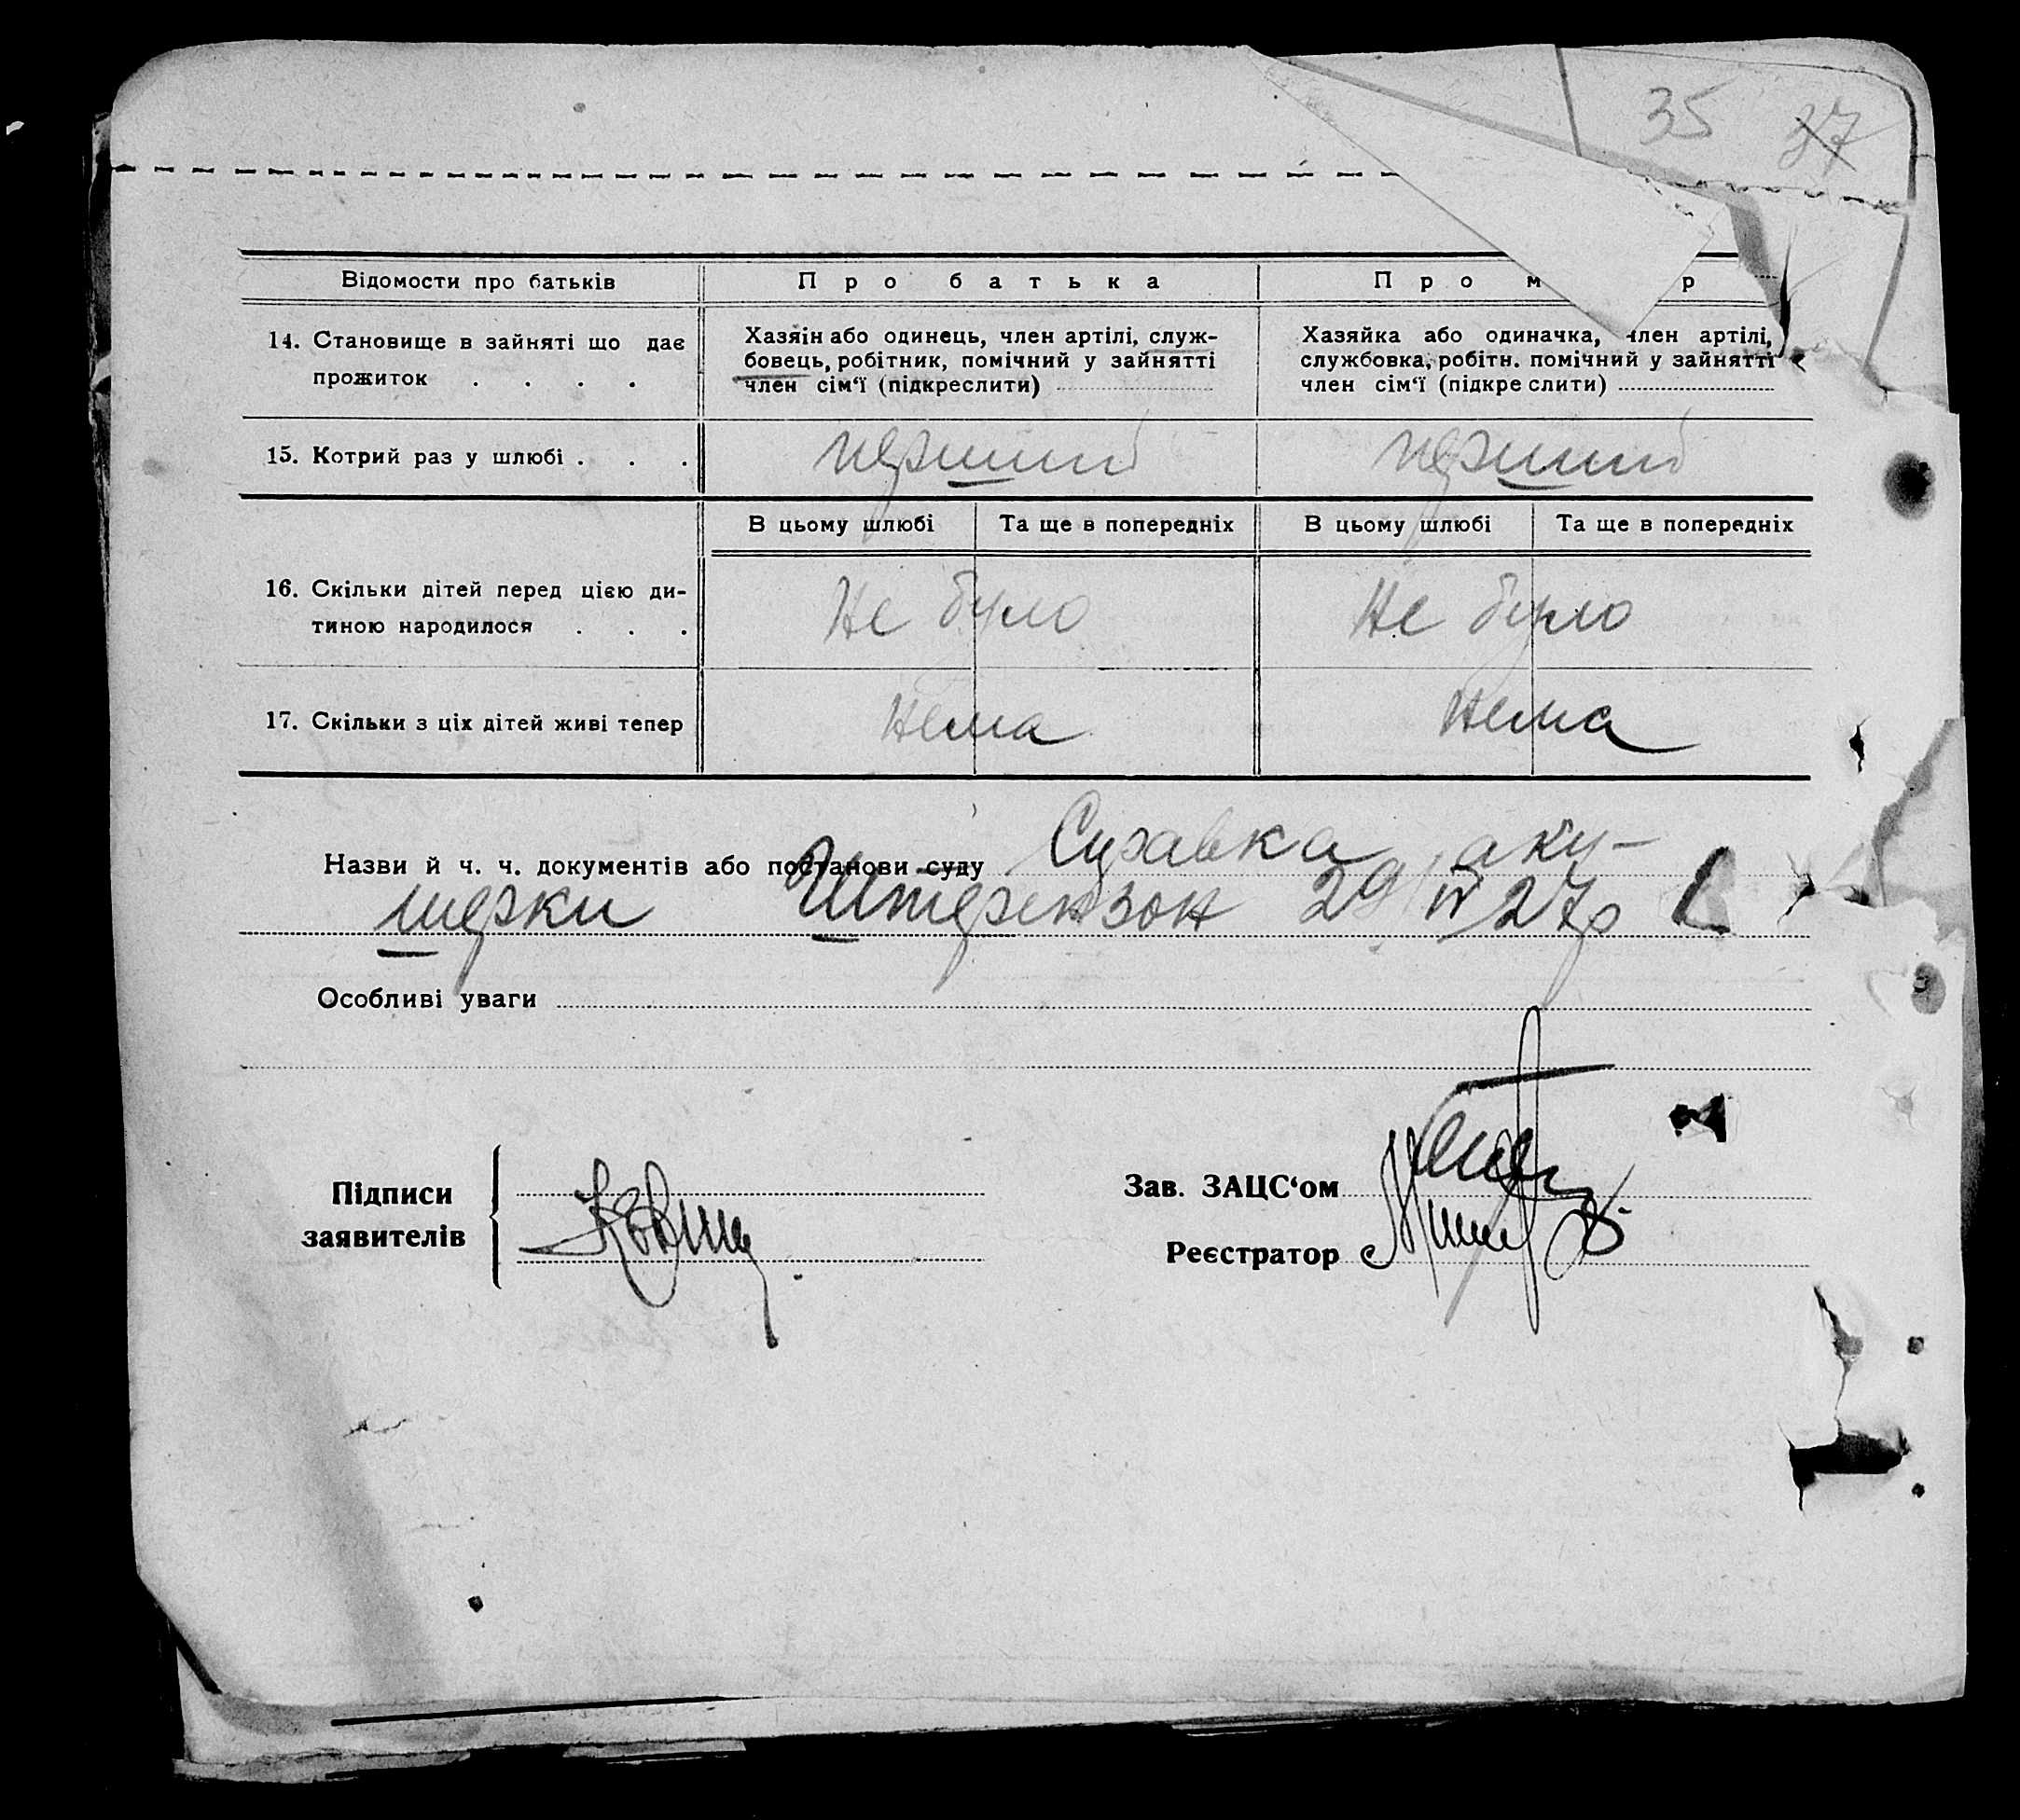 35 37
Відомости про батьків
Про батька
Про м р
14. Становище в зайняті що дає
прожиток . . . .
Хазяїн або одинець, член артілі, служ-
бовець, робітник, помічний у зайнятті
член сім‘ї (підкреслити)
Хазяйка або одиначка, член артілі,
службовка, робітн. помічний у зайнятті
член сім‘ї (підкре слити)
15. Котрий раз у шлюбі . . .
перший
перший
В цьому шлюбі
Та ще в попередніх
В цьому шлюбі
Та ще в попередніх
16. Скільки дітей перед цією ди-
тиною народилося . . .
Не було
Не було
17. Скільки з ціх дітей живі тепер
Нема
Нема
Назви й ч. ч. документів або постанови суду Справка аку-
шерки Штерензон 29/IV 27р
Особливі уваги
Підписи
заявителів
Зав. ЗАЦС‘ом
Реєстратор